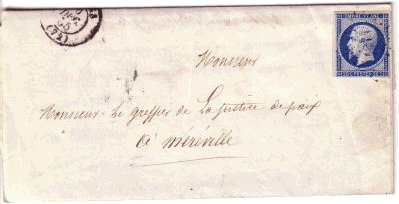 Monsieur
EMPIRE FRANC.
20 C. POSTES 20 C.
Monsieur Le greffier de La justice de paix
à Méréville